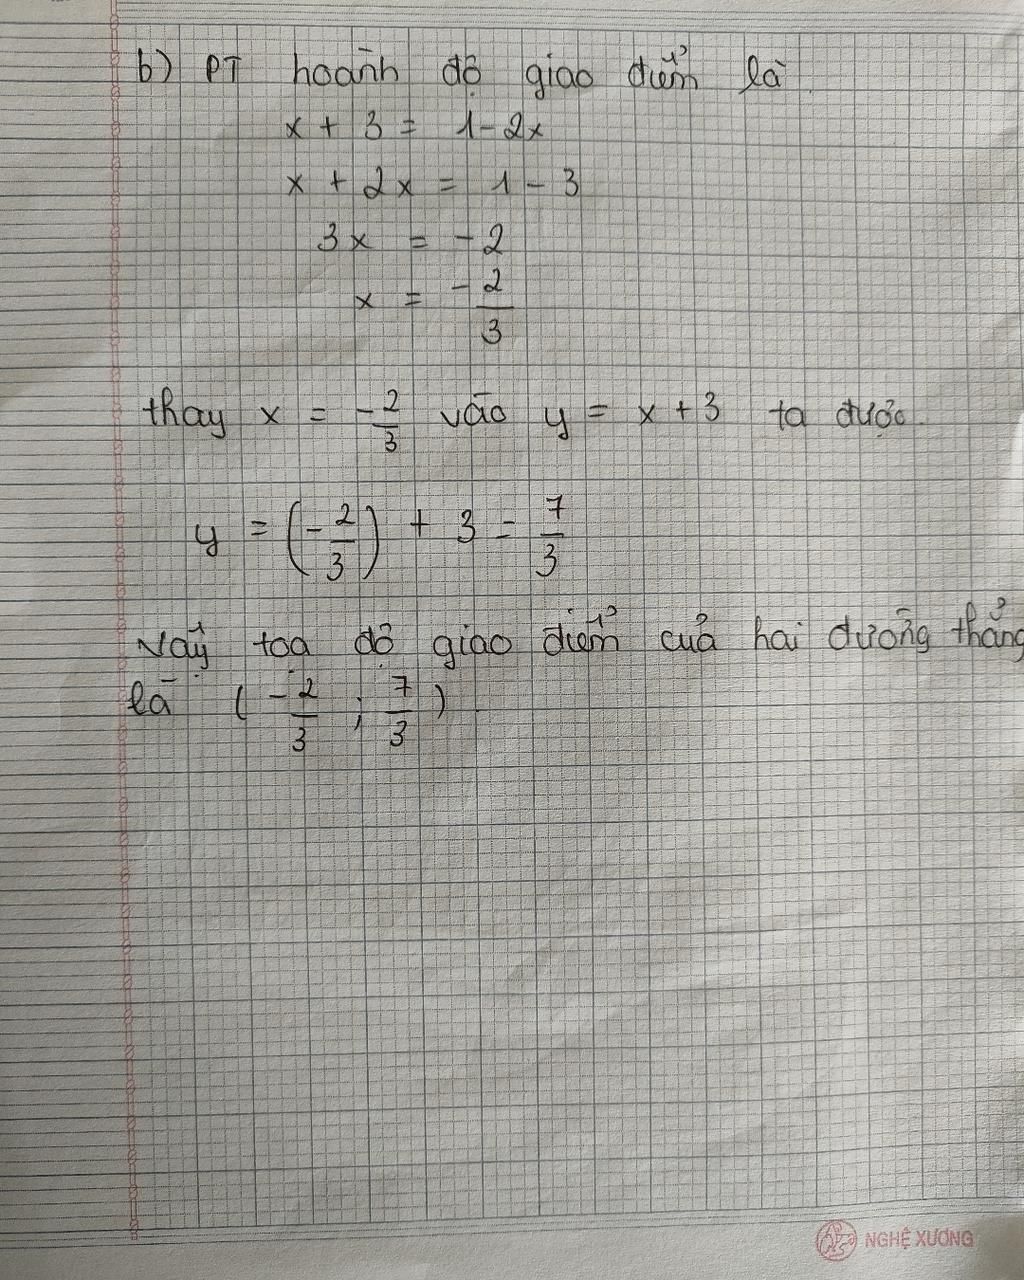 b) PT hoành độ giao điểm là
x + 3 = 1 - 2x
x + 2x = 1 - 3
3x = -2
x = -2/3
thay x = -2/3 vào y = x + 3 ta được.
y = (-2/3) + 3 = 7/3
Vậy toạ độ giao điểm của hai đường thẳng
là (-2/3 ; 7/3)
NGHỆ XƯƠNG